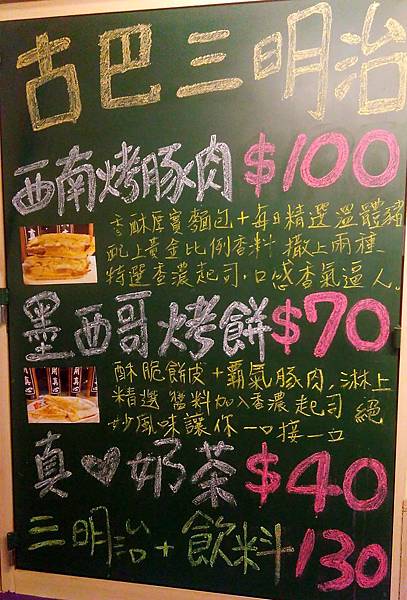 古巴三明治
西南烤豚肉 $100
香酥厚實麵包+每日精選溫體豬
配上黃金比例香料 撒上兩種
特選香濃起司,口感香氣逼人。
墨西哥烤餅 $70
酥脆餅皮+霸氣豚肉,淋上
精選醬料加入香濃起司 絕
妙風味讓你一口接一口
真♥奶茶 $40
三明治+飲料 130